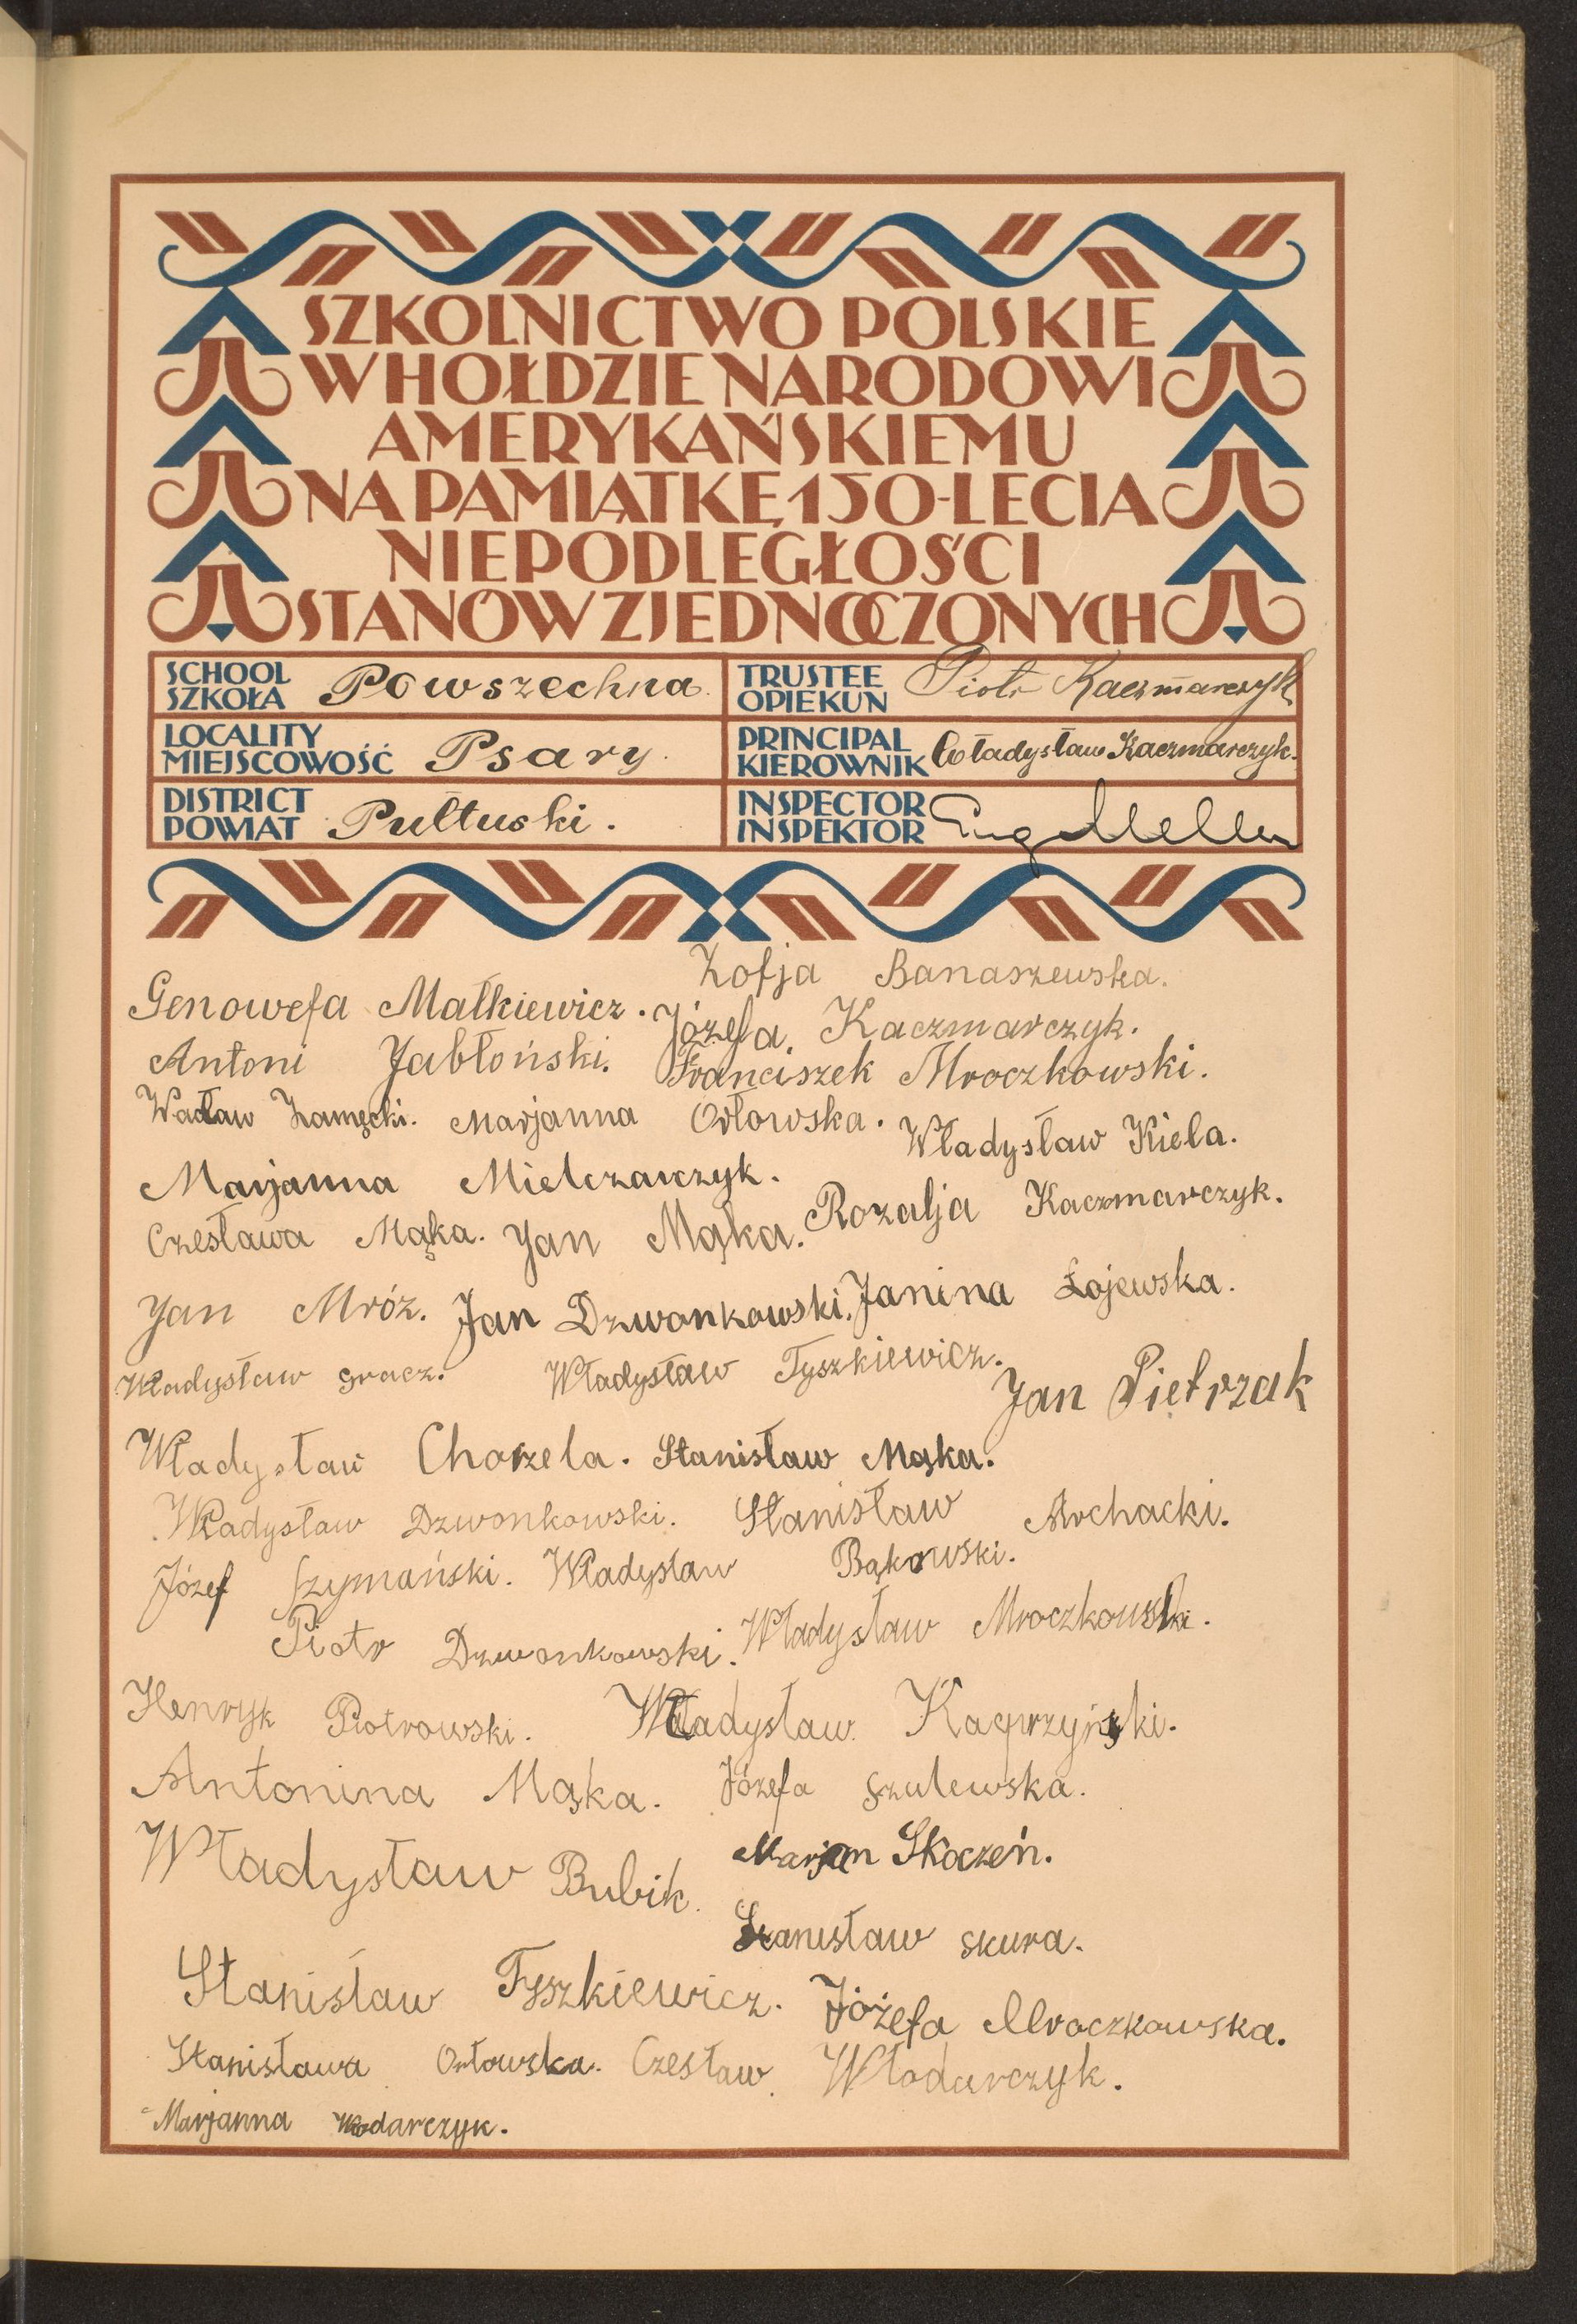 SZKOLNICTWO POLSKIE
W HOŁDZIE NARODOWI
AMERYKAŃSKIEMU
NA PAMIĄTKĘ 150-LECIA
NIEPODLEGŁOŚCI
STANÓW ZJEDNOCZONYCH
SCHOOL
SZKOŁA Powszechna.
TRUSTEE
OPIEKUN Piotr Kaczmarczyk
LOCALITY
MIEJSCOWOŚĆ Psary.
PRINCIPAL
KIEROWNIK Władysław Kaczmarczyk.
DISTRICT
POWIAT Pułtuski.
INSPECTOR
INSPEKTOR
Zofja Banaszewska.
Genowefa Małkiewicz. Józefa Kaczmarczyk.
Antoni Jabłoński. Franciszek Mroczkowski.
Wacław Zamęcki. Marjanna Orłowska. Władysław Kiela.
Marjanna Mielczarczyk.
Czesława Mąka. Jan Mąka. Rozalja Kaczmarczyk.
Jan Mróz. Jan Dzwonkowski. Janina Łojewska.
Władysław gracz. Władysław Tyszkiewicz. Jan Pietrzak
Władysław Chorzela. Stanisław Mąka.
Władysław Dzwonkowski. Stanisław Archacki.
Józef Szymański. Władysław Bąkowski.
Piotr Dzwonkowski. Władysław Mroczkowski.
Henryk Piotrowski. Władysław Kacprzyński.
Antonina Mąka. Józefa Szulewska.
Władysław Bubik. Marjan Skoczeń.
Stanisław skura.
Stanisław Tyszkiewicz. Józefa Mroczkowska.
Stanisława Orłowska. Czesław Włodarczyk.
Marjanna Włodarczyk.